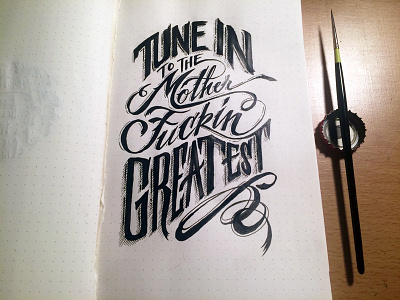 TUNE IN
TO THE
Mother
Fuckin'
GREATEST